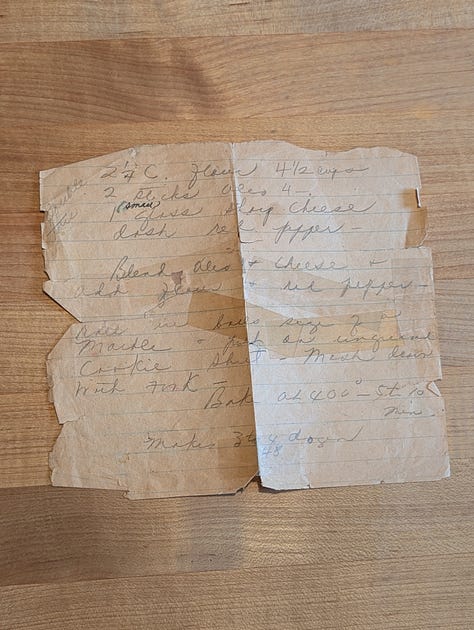 2 1/4 C. flour 4 1/2 cups
2 sticks oleo 4 -
1 small glass sharp cheese
dash red pepper -
Blend oleo + cheese +
add flour + red pepper -
Roll in balls size of a
Marble + put on ungreased
Cookie sheet - Mash down
with fork -
Bake at 400° - 5 to 10
min.
Makes 3 to 4 dozen
48